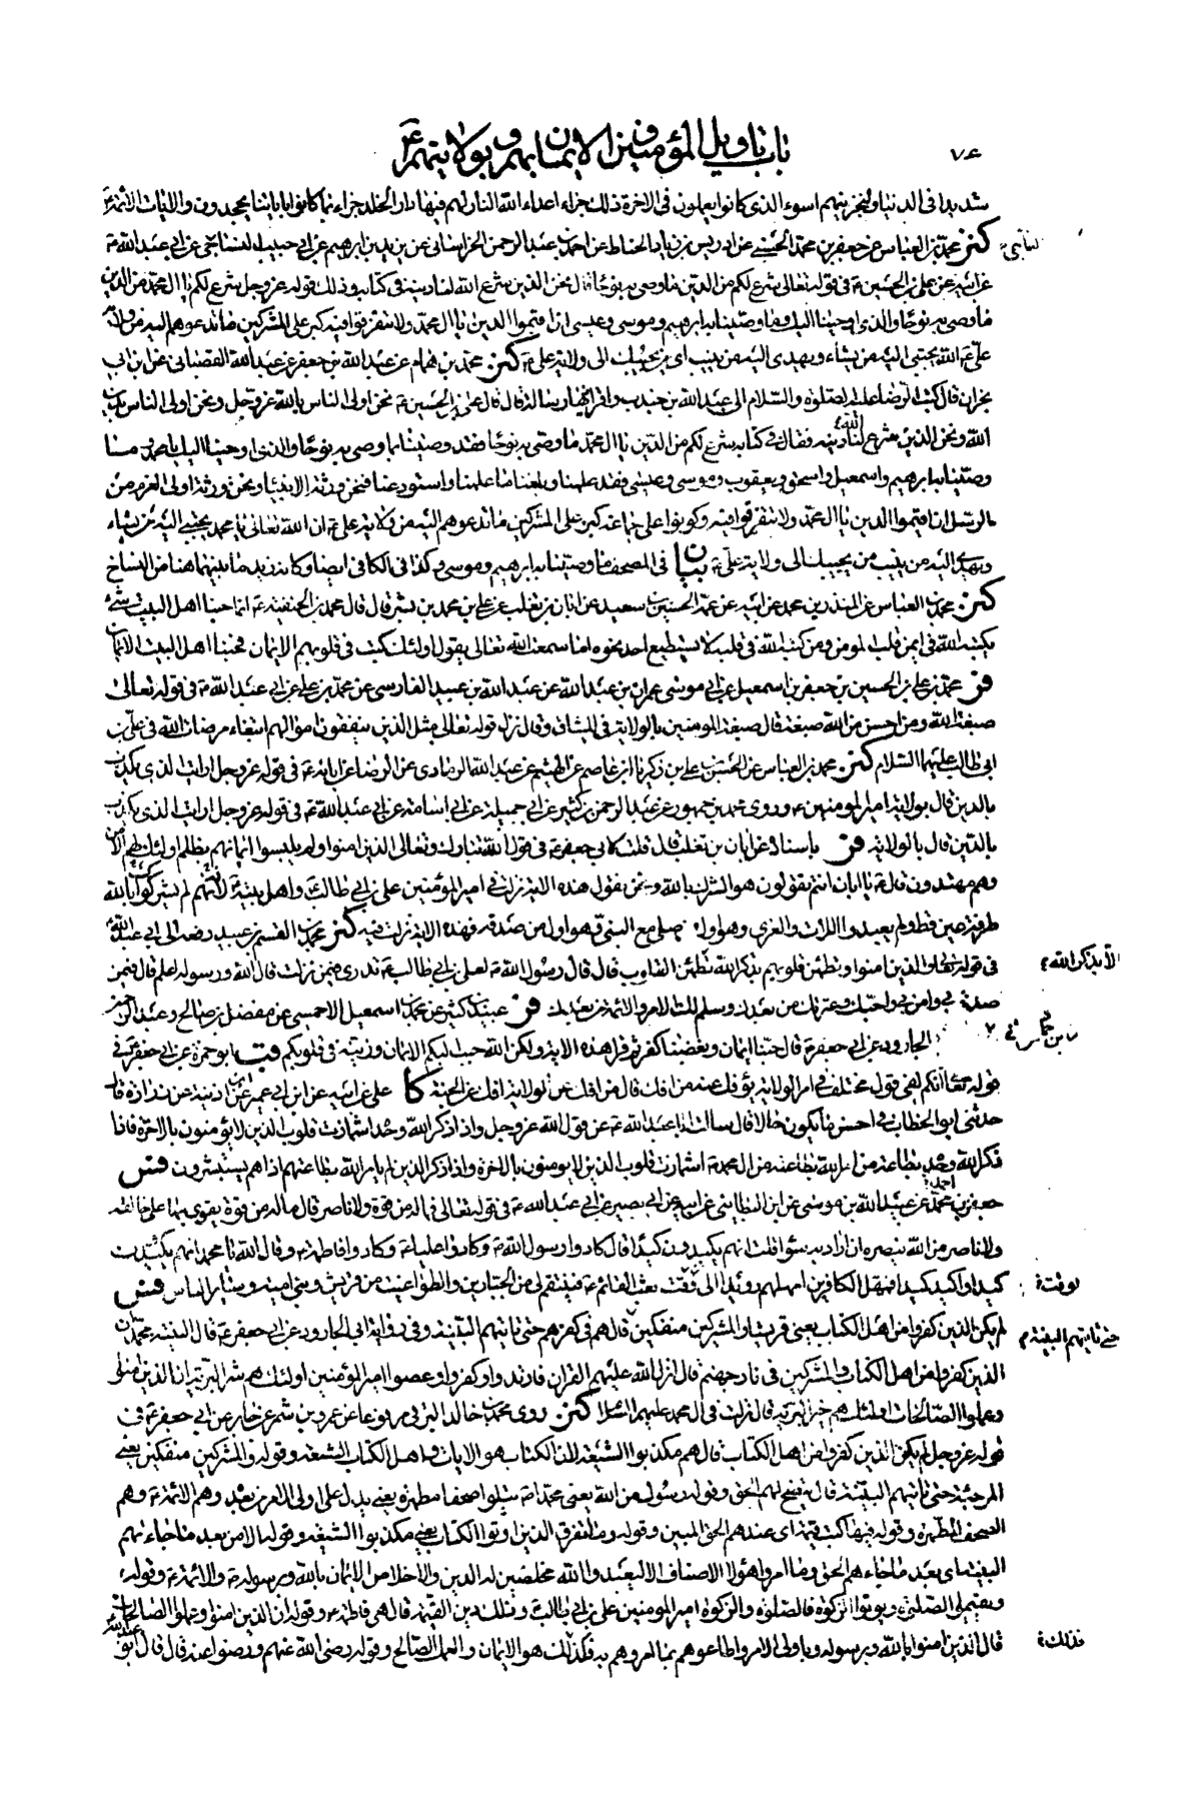 باب تاويل المؤمنين و الايمان بهم و بولايتهم ع
٧٤
شديدا فى الدنيا ولنجزينهم اسوء الذى كانوا يعملون فى الاخرة ذلك جزاء اعداء الله النار لهم فيها دار الخلد جزاء بما كانوا باياتنا يجحدون والايات الائمة ع
كنز محمد بن العباس عن جعفر بن محمد الحسنى عن ادريس بن زياد الحناط عن احمد بن عبد الرحمن الخراسانى عن يزيد بن ابرهيم عن ابى حبيب النساجى عن ابى عبد الله ع
عن ابيه عن على بن الحسين ع فى قوله تعالى شرع لكم من الدين ما وصى به نوحا قال نحن الذين شرع الله لنا دينه فى كتابه وذلك قوله عز وجل شرع لكم يا ال محمد من الدين
ما وصى به نوحا والذى اوحينا اليك وما وصينا به ابرهيم وموسى وعيسى ان اقيموا الدين يا ال محمد ولا تتفرقوا فيه كبر على المشركين ما تدعوهم اليه من ولاية
على ع الله يجتبى اليه من يشاء ويهدى اليه من ينيب اى من يجيبك الى ولاية على ع كنز محمد بن همام عن عبد الله بن جعفر عن عبد الله القصبانى عن ابن ابى
نجران قال كتب الرضا عليه الصلوة والسلام الى عبد الله بن جندب واقرانيها رسالة قال قال على بن الحسين ع نحن اولى الناس بالله عز وجل ونحن اولى الناس بكتاب
الله ونحن الذين شرع الله لنا دينه فقال فى كتابه شرع لكم من الدين يا ال محمد ما وصى به نوحا فقد وصينا بما وصى به نوحا والذى اوحينا اليك يا محمد وما
وصينا به ابرهيم واسمعيل واسحق ويعقوب وموسى وعيسى فقد علمنا وبلغنا ما علمنا واستودعنا فنحن ورثة الانبياء ونحن ورثة اولى العزم من
الرسل ان اقيموا الدين يا ال محمد ولا تتفرقوا فيه وكونوا على جماعة كبر على المشركين ما تدعوهم اليه من ولاية على ع ان الله تعالى يا محمد يجتبى اليه من يشاء
ويهدى اليه من ينيب من يجيبك الى ولاية على ع بيان فى المصحف ما وصينا به ابرهيم وموسى وكذا فى الكافى ايضا وكانه زيد ما بينهما هنا من النساخ
كنز محمد بن العباس عن المنذر بن محمد عن ابيه عن عمه الحسين بن سعيد عن ابان بن تغلب عن على بن محمد بن بشر قال قال محمد بن الحنفية ع انما حبنا اهل البيت شىء
يكتبه الله فى ايمن قلب المؤمن ومن كتبه الله فى قلبه لا يستطيع احد محوه اما سمعت الله تعالى يقول اولئك كتب فى قلوبهم الايمان فحبنا اهل البيت الايمان
فر محمد بن على بن الحسين بن جعفر بن اسمعيل عن ابى موسى عمران بن عبد الله عن عبد الله بن عبيد الفارسى عن محمد بن على عن ابى عبد الله ع فى قوله تعالى
صبغة الله ومن احسن من الله صبغة قال صبغة المؤمنين بالولاية فى الميثاق وقال نزل قوله تعالى مثل الذين ينفقون اموالهم ابتغاء مرضات الله فى على بن
ابى طالب عليهما السلام كنز محمد بن العباس عن الحسن بن على بن زكريا بن عاصم عن الهيثم عن عبد الله الرمادى عن الرضا عن ابائه ع فى قوله عز وجل ارايت الذى يكذب
بالدين قال بولاية امير المؤمنين ع وروى محمد بن جمهور عن عبد الرحمن بن كثير عن ابى جميلة عن ابى اسامة عن ابى عبد الله ع فى قوله عز وجل ارايت الذى يكذب
بالدين قال بالولاية فر باسناده عن ابان بن تغلب قال قلت لابى جعفر ع فى قول الله تبارك وتعالى الذين امنوا ولم يلبسوا ايمانهم بظلم اولئك لهم الامن
وهم مهتدون قال ع يا ابان انتم تقولون هو الشرك بالله ونحن نقول هذه الاية نزلت فى امير المؤمنين على بن ابى طالب ع واهل بيته ع لانهم لم يشركوا بالله
طرفة عين قط ولم يعبدوا اللات والعزى وهو اول من صلى مع النبى ص وهو اول من صدقه فهذه الاية نزلت فيه كنز محمد بن القسم بن عبيد رفعه الى ابى عبد الله ع
فى قوله تعالى الذين امنوا وتطمئن قلوبهم بذكر الله تطمئن القلوب قال قال رسول الله ص لعلى بن ابى طالب ع تدرى فيمن نزلت قال الله ورسوله اعلم قال فيمن
الا بذكر الله
صدق بى وامن بى واحبك وعترتك من بعدك وسلم لك الامر والائمة من بعدك فر عبيد بن كثير عن محمد بن اسمعيل الاحمسى عن مفضل بن صالح وعبد الرحمن
الجارود عن ابى جعفر ع قال حبنا ايمان وبغضنا كفر ثم قرا هذه الاية ولكن الله حبب اليكم الايمان وزينه فى قلوبكم قب ابو حمزة عن ابى جعفر ع فى
قوله تعالى انكم لفى قول مختلف فى امر الولاية يؤفك عنه من افك قال من افك عن الولاية افك عن الجنة كا على عن ابيه عن ابن ابى عمير عن ابن اذينة عن زرارة قال
حدثنى ابو الخطاب فى احسن ما يكون حالا قال سالت ابا عبد الله ع عن قول الله عز وجل واذا ذكر الله وحده اشمازت قلوب الذين لا يؤمنون بالاخرة فاذا
ذكر الله وحده بطاعة من امر الله بطاعته من ال محمد ع اشمازت قلوب الذين لا يؤمنون بالاخرة واذا ذكر الذين لم يامر الله بطاعتهم اذا هم يستبشرون فس
جعفر بن احمد عن عبيد الله بن موسى عن ابن البطاينى عن ابيه عن ابى بصير عن ابى عبد الله ع فى قوله تعالى فما له من قوة ولا ناصر قال ما له من قوة يقوى بها على خالقه
ولا ناصر من الله ينصره ان اراد به سوءا قلت انهم يكيدون كيدا قال كادوا رسول الله ص وكادوا عليا ع وكادوا فاطمة ع وقال الله يا محمد انهم يكيدون
كيدا واكيد كيدا فمهل الكافرين امهلهم رويدا الى وقت بعث القائم ع فينتقم لى من الجبارين والطواغيت من قريش وبنى امية وساير الناس فس
لوقت
لم يكن الذين كفروا من اهل الكتاب يعنى قريشا والمشركين منفكين قال هم فى كفرهم حتى تاتيهم البينة وفى رواية ابى الجارود عن ابى جعفر ع قال البينة محمد ص ان
حتى تاتيهم البينة
الذين كفروا من اهل الكتاب والمشركين فى نار جهنم قال انزل الله عليهم القران فارتدوا وكفروا وعصوا امير المؤمنين اولئك هم شر البرية ان الذين امنوا
وعملوا الصالحات اولئك هم خير البرية قال نزلت فى ال محمد عليهم السلام كنز روى محمد بن خالد البرقى مرفوعا عن عمرو بن شمر عن جابر عن ابى جعفر ع فى
قوله عز وجل لم يكن الذين كفروا من اهل الكتاب قال هم مكذبوا الشيعة لان الكتاب هو الايات واهل الكتاب الشيعة وقوله والمشركين منفكين يعنى
المرجئة حتى تاتيهم البينة قال يتضح لهم الحق وقوله رسول من الله يعنى محمدا ص يتلوا صحفا مطهرة يعنى يدل على اولى الامر من بعده وهم الائمة ع وهم
الصحف المطهرة وقوله فيها كتب قيمة اى عندهم الحق المبين وقوله وما تفرق الذين اوتوا الكتاب يعنى مكذبوا الشيعة وقوله الا من بعد ما جاءتهم
البينة اى بعد ما جاءهم الحق وما امروا هؤلاء الاصناف الا ليعبدوا الله مخلصين له الدين والاخلاص الايمان بالله وبرسوله ص والائمة ع وقوله
ويقيموا الصلوة ويؤتوا الزكوة فالصلوة والزكوة امير المؤمنين على بن ابى طالب ع وذلك دين القيمة قال هى فاطمة ع وقوله ان الذين امنوا وعملوا الصالحات
قال الذين امنوا بالله وبرسوله وباولى الامر واطاعوهم بما امروهم به فذلك هو الايمان والعمل الصالح وقوله رضى الله عنهم ورضوا عنه قال قال ابو عبد الله ع
فذلك